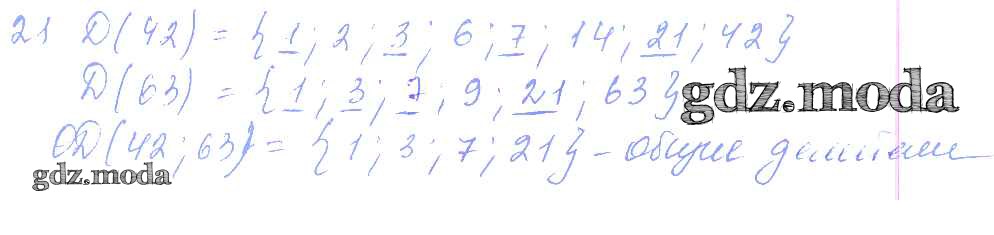 21 D(42) = {1; 2; 3; 6; 7; 14; 21; 42}
D(63) = {1; 3; 7; 9; 21; 63}
gdz.moda
ОD(42; 63) = {1; 3; 7; 21} – общие делители
gdz.moda